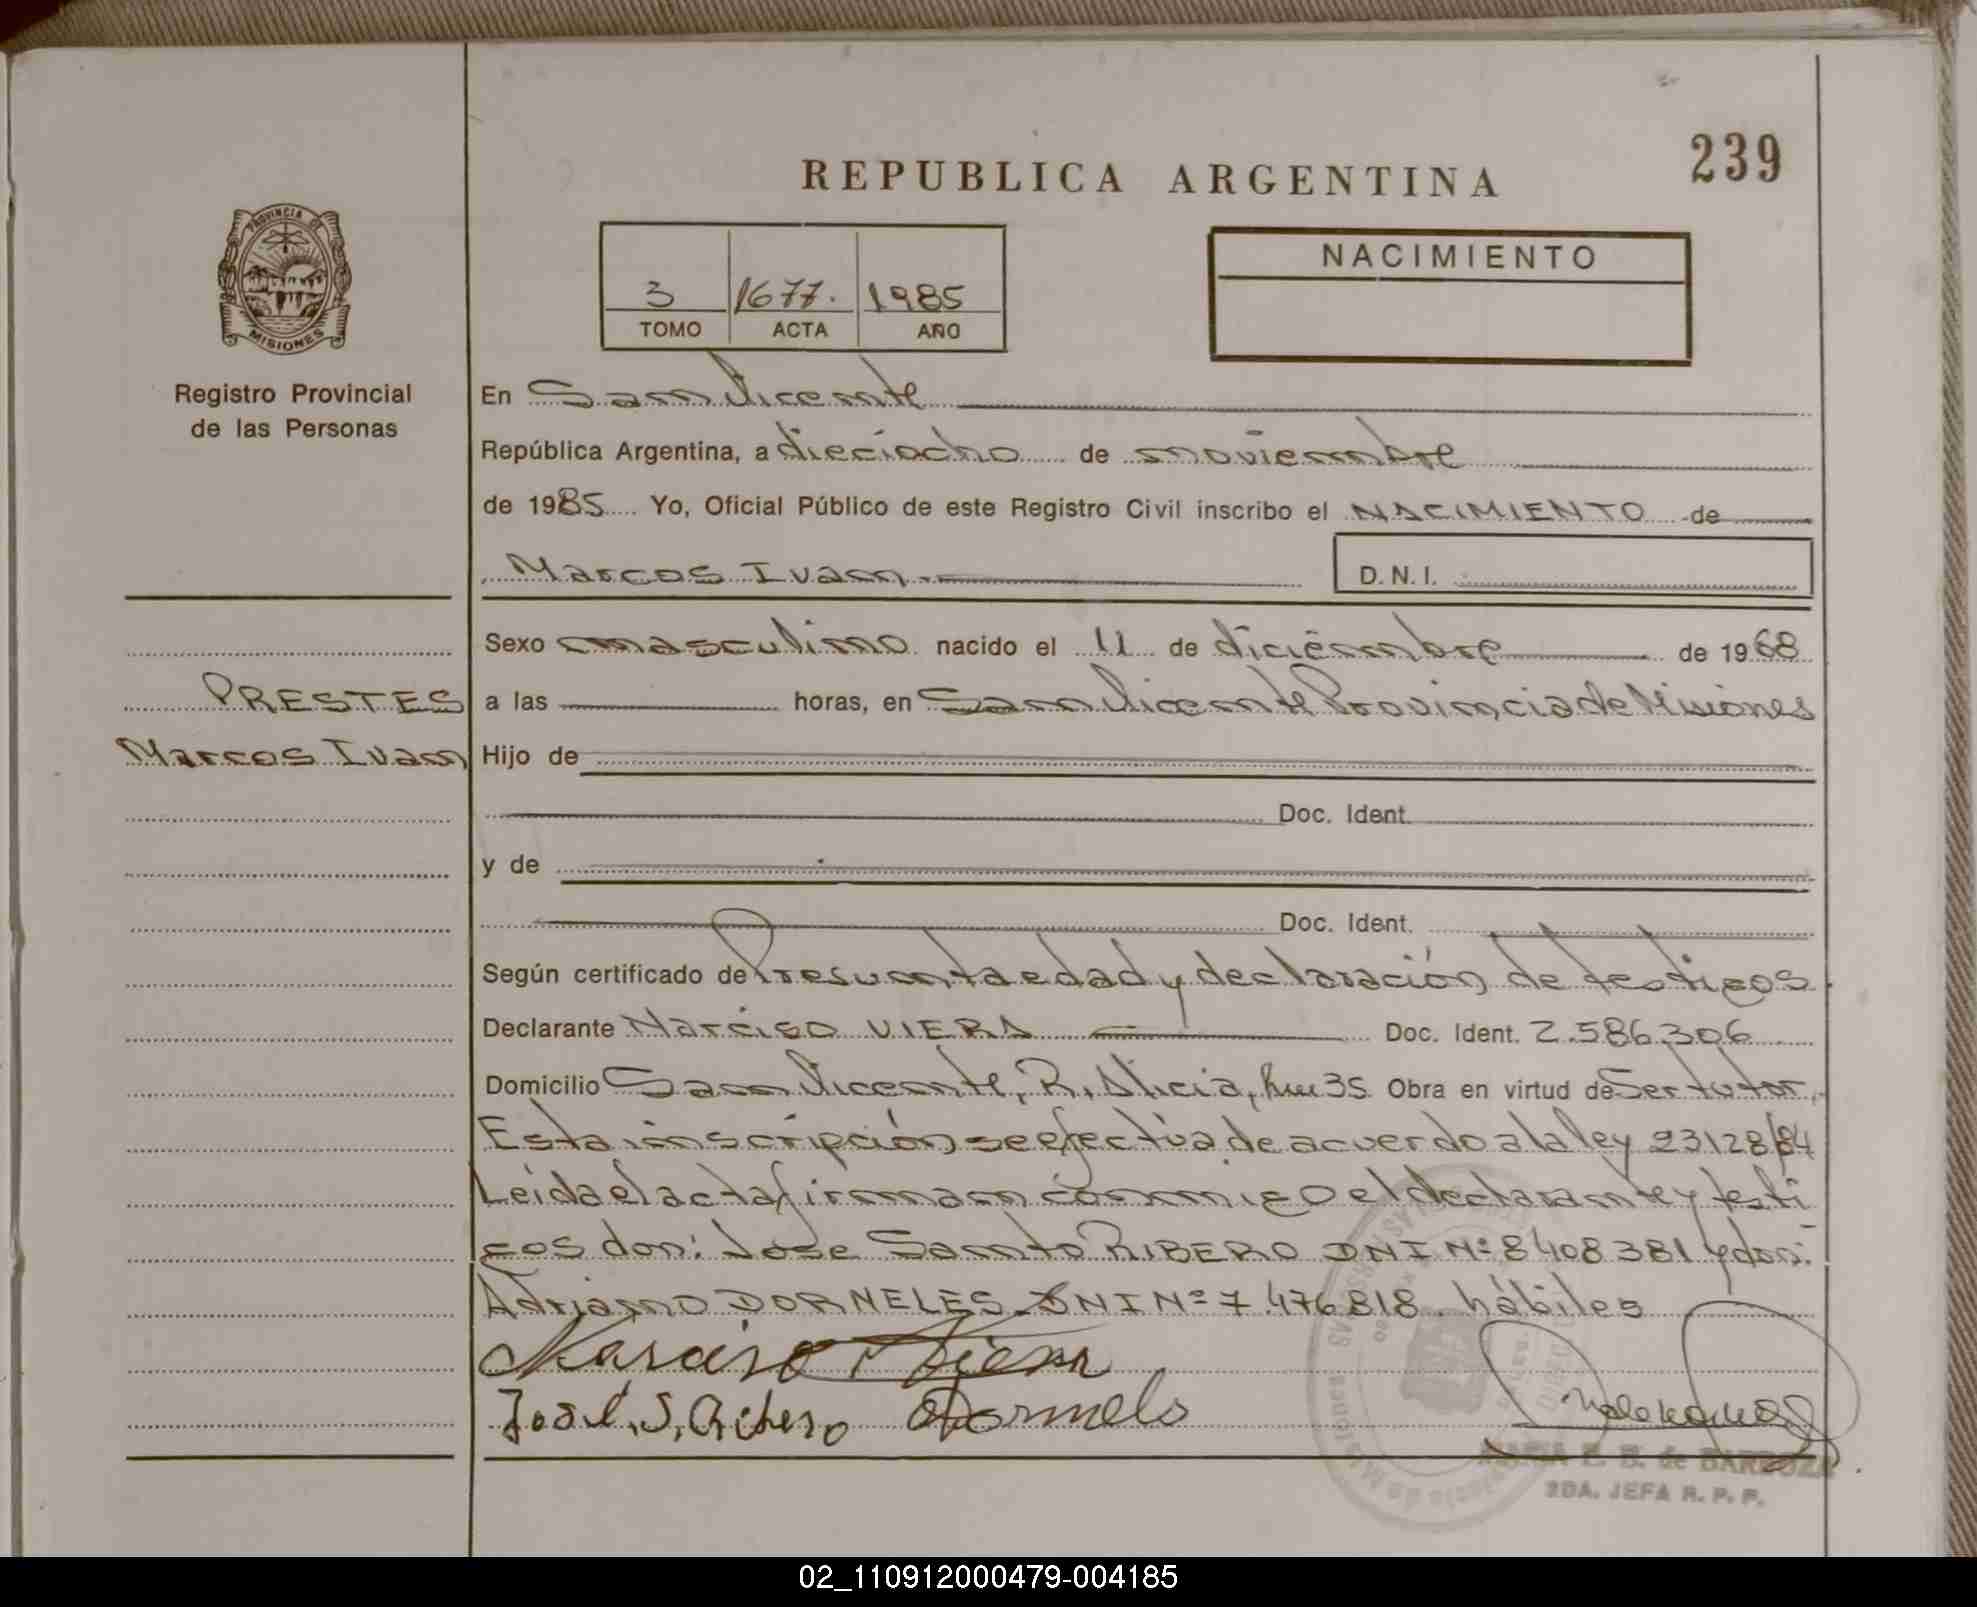 239
REPUBLICA ARGENTINA
PROVINCIA DE
MISIONES
Registro Provincial
de las Personas
3 1677. 1985
TOMO ACTA AÑO
NACIMIENTO
En San Vicente
República Argentina, a dieciocho de noviembre
de 1985 Yo, Oficial Público de este Registro Civil inscribo el NACIMIENTO de
Marcos Ivan
D.N.I.
Sexo masculino nacido el 11 de diciémbre de 1968
PRESTES
Marcos Ivan
a las horas, en San Vicente Provincia de Misiones
Hijo de
Doc. Ident.
y de
Doc. Ident.
Según certificado de Presunta edad y declaración de testigos
Declarante Narciso VIERA Doc. Ident. 2.586.306
Domicilio San Vicente, R. Alicia, km 35 Obra en virtud de Ser tutor,
Esta inscripción se efectúa de acuerdo a la ley 23128/84
Leída el acta firman conmigo el declarante y testi
gos don: José Santo RIBERO DNI Nº 8408381 y don:
Adriano DORNELES DNI Nº 7.476818. hábiles
Narciso Viera
José. S. Ribero Dornels
MARIA E. B. de BARBOZA
2DA. JEFA R. P. P.
02_110912000479-004185